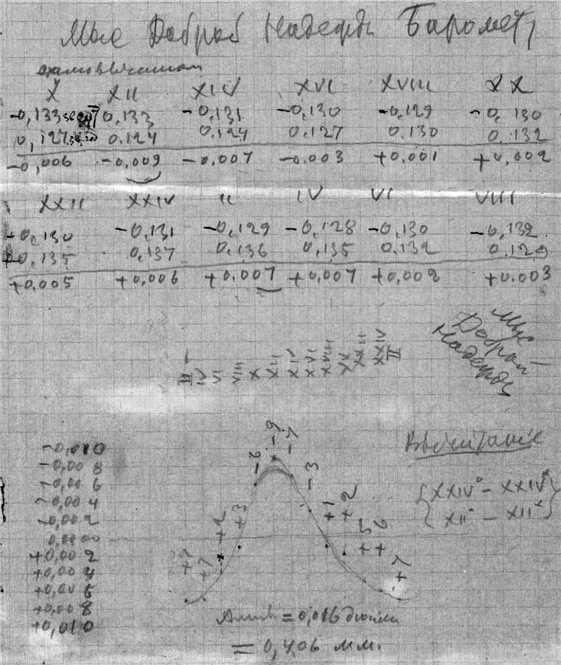 Мыс Доброй Надежды Барометр
X XII XIV XVI XVIII XX
-0,133 0.133 -0,131 -0,130 -0,129 -0,130
0,127 0.124 0.124 0.127 0.130 0.132
-0,006 -0,009 -0,007 -0.003 +0,001 +0,002
XXII XXIV II IV VI VIII
-0,130 -0.131 -0,129 -0,128 -0,130 -0,132
+0.135 0.137 0.136 0.135 0.132 0.129
+0.005 +0,006 +0,007 +0,007 +0,002 +0.003
Мыс
Доброй
Надежды
II IV VI VIII X XII XIV XVI XVIII XX XXII XXIV II
-0,010
-0,008
-0,006
-0,004
-0,002
0,000
+0,002
+0,004
+0,006
+0,008
+0,010
+7 +7 +2 +3 -6 -9 -7 -3 +1 +2 +5 +6 +7
Вычитание
XXIV° - XXIV
XII° - XII
Ампл = 0,016 дюйма
= 0,406 мм.